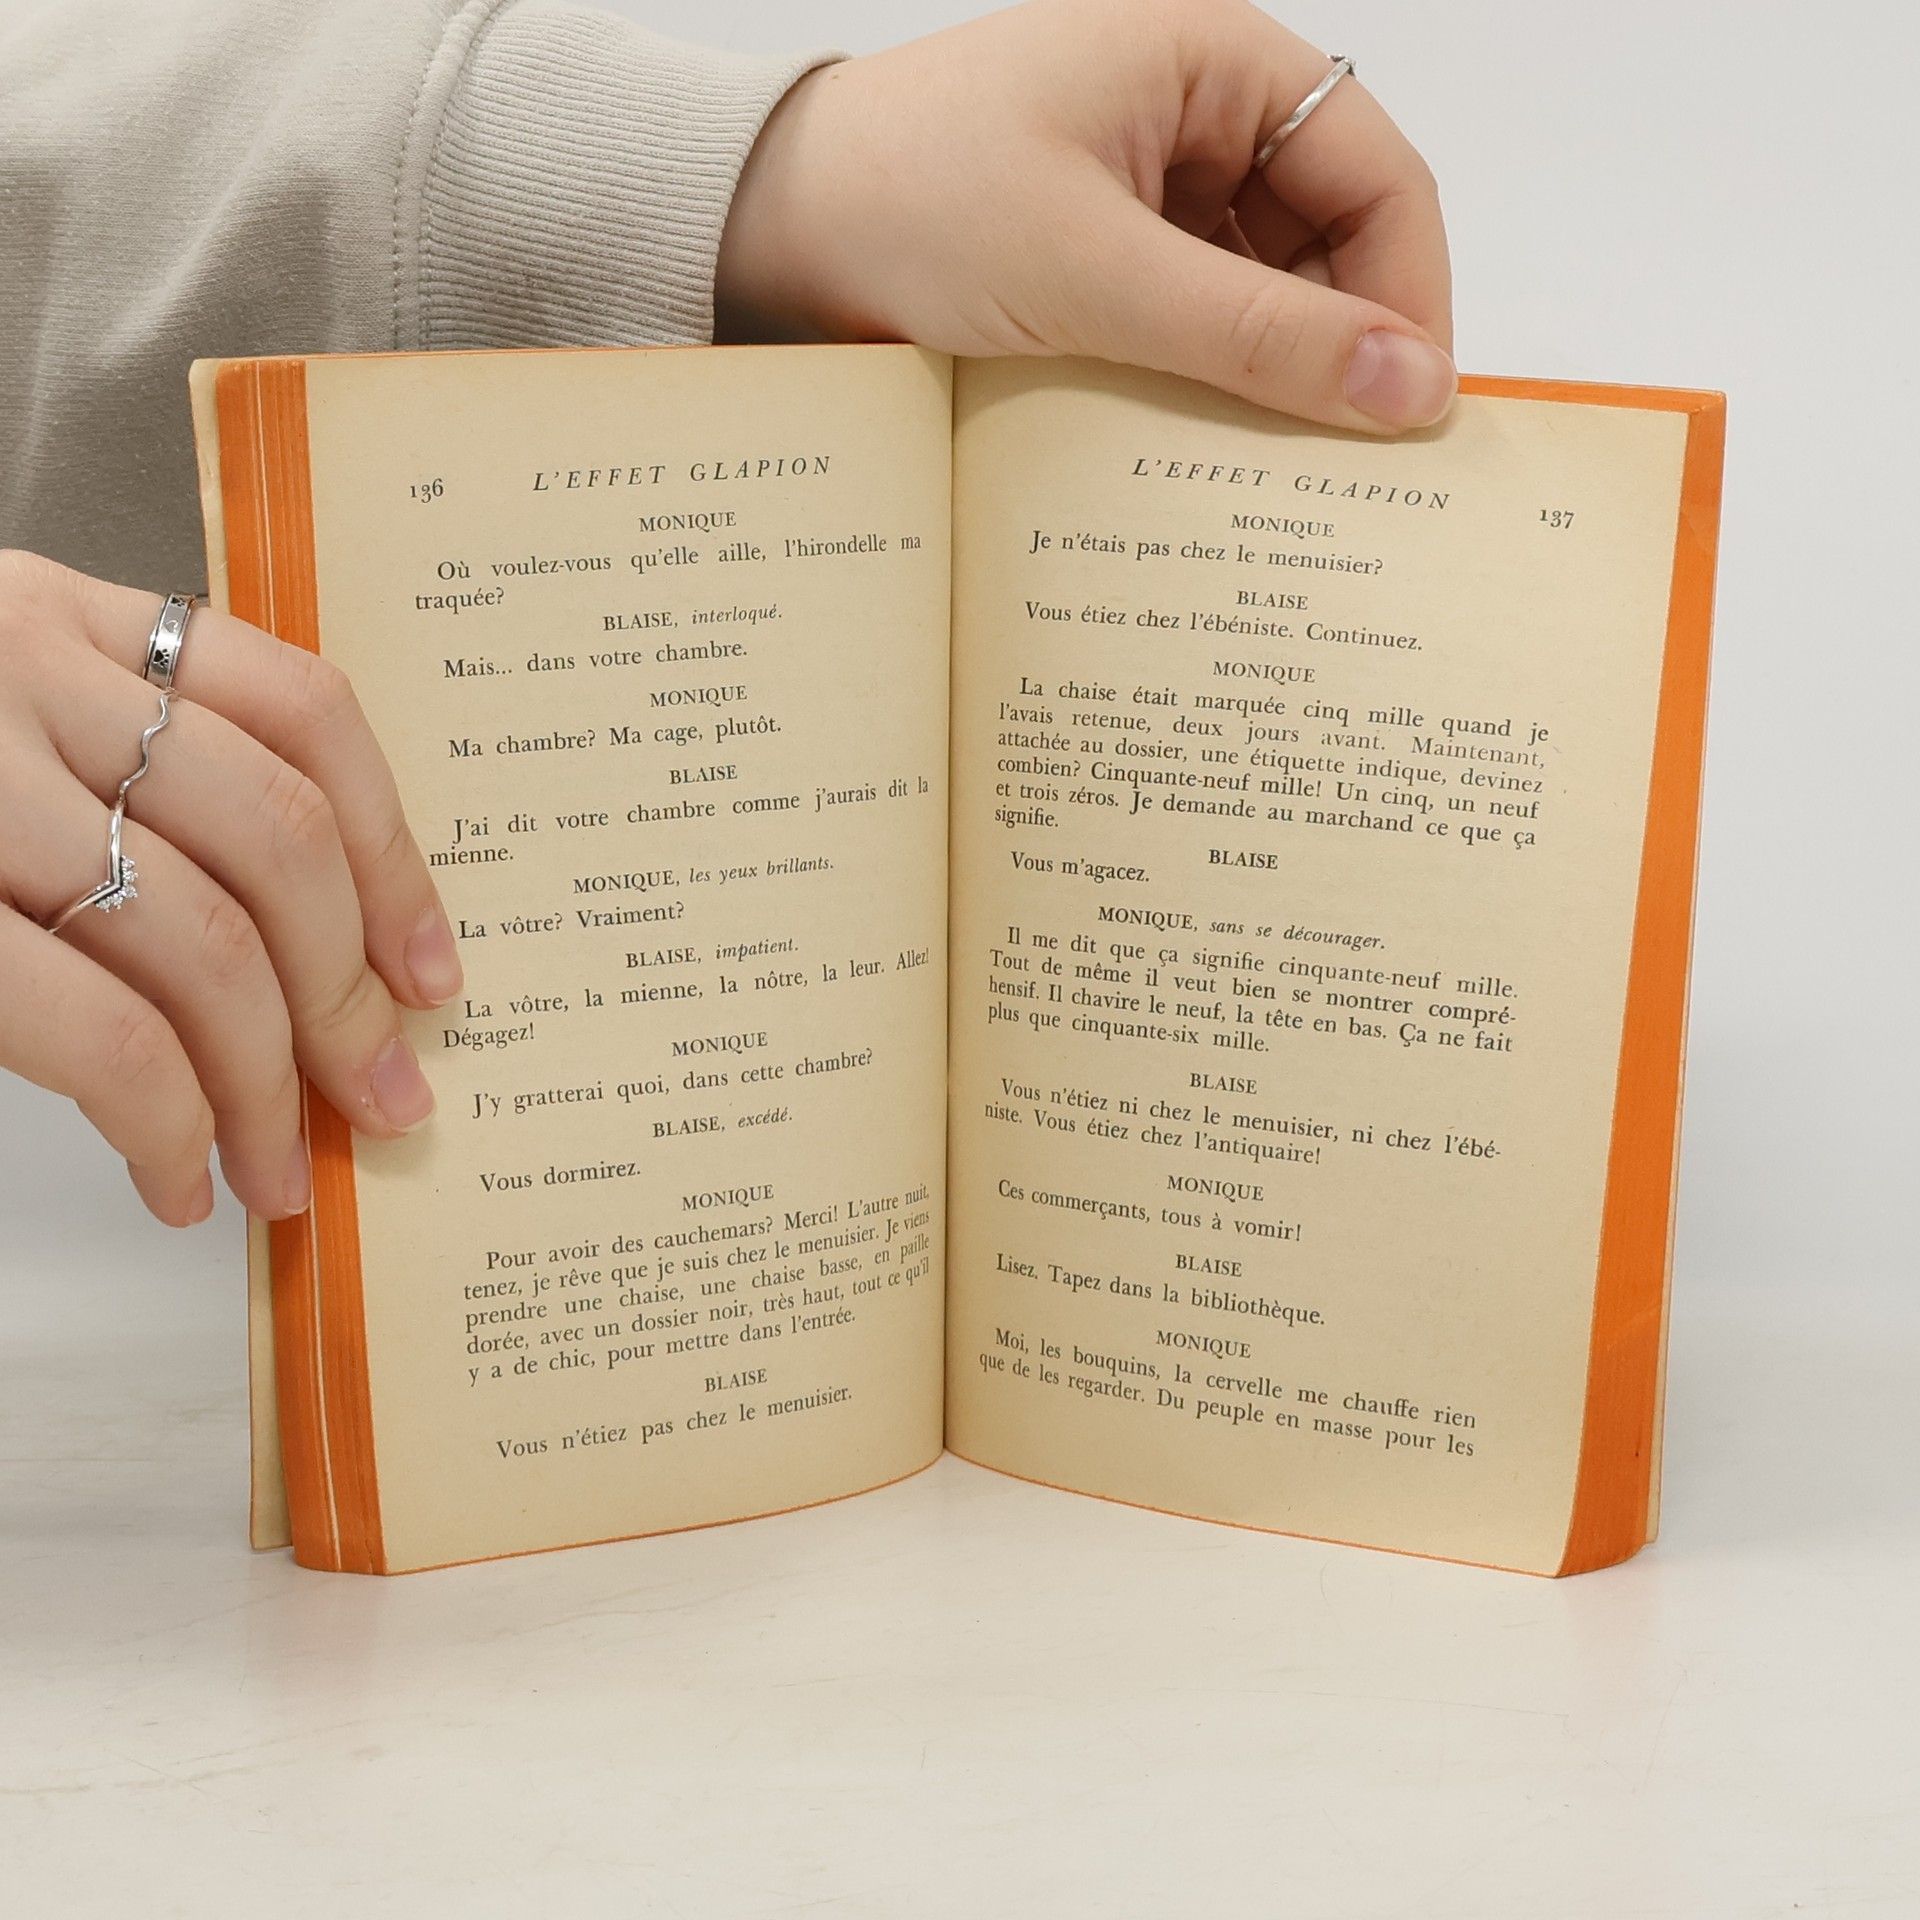 136
L'EFFET GLAPION
MONIQUE
Où voulez-vous qu'elle aille, l'hirondelle ma
traquée?
BLAISE, interloqué.
Mais... dans votre chambre.
MONIQUE
Ma chambre? Ma cage, plutôt.
BLAISE
J'ai dit votre chambre comme j'aurais dit la
mienne.
MONIQUE, les yeux brillants.
La vôtre? Vraiment?
BLAISE, impatient.
La vôtre, la mienne, la nôtre, la leur. Allez!
Dégagez!
MONIQUE
J'y gratterai quoi, dans cette chambre?
BLAISE, excédé.
Vous dormirez.
MONIQUE
Pour avoir des cauchemars? Merci! L'autre nuit,
tenez, je rêve que je suis chez le menuisier. Je viens
prendre une chaise, une chaise basse, en paille
dorée, avec un dossier noir, très haut, tout ce qu'il
y a de chic, pour mettre dans l'entrée.
BLAISE
Vous n'étiez pas chez le menuisier.
L'EFFET GLAPION
137
MONIQUE
Je n'étais pas chez le menuisier?
BLAISE
Vous étiez chez l'ébéniste. Continuez.
MONIQUE
La chaise était marquée cinq mille quand je
l'avais retenue, deux jours avant. Maintenant,
attachée au dossier, une étiquette indique, devinez
combien? Cinquante-neuf mille! Un cinq, un neuf
et trois zéros. Je demande au marchand ce que ça
signifie.
BLAISE
Vous m'agacez.
MONIQUE, sans se décourager.
Il me dit que ça signifie cinquante-neuf mille.
Tout de même il veut bien se montrer compré-
hensif. Il chavire le neuf, la tête en bas. Ça ne fait
plus que cinquante-six mille.
BLAISE
Vous n'étiez ni chez le menuisier, ni chez l'ébé-
niste. Vous étiez chez l'antiquaire!
MONIQUE
Ces commerçants, tous à vomir!
BLAISE
Lisez. Tapez dans la bibliothèque.
MONIQUE
Moi, les bouquins, la cervelle me chauffe rien
que de les regarder. Du peuple en masse pour les